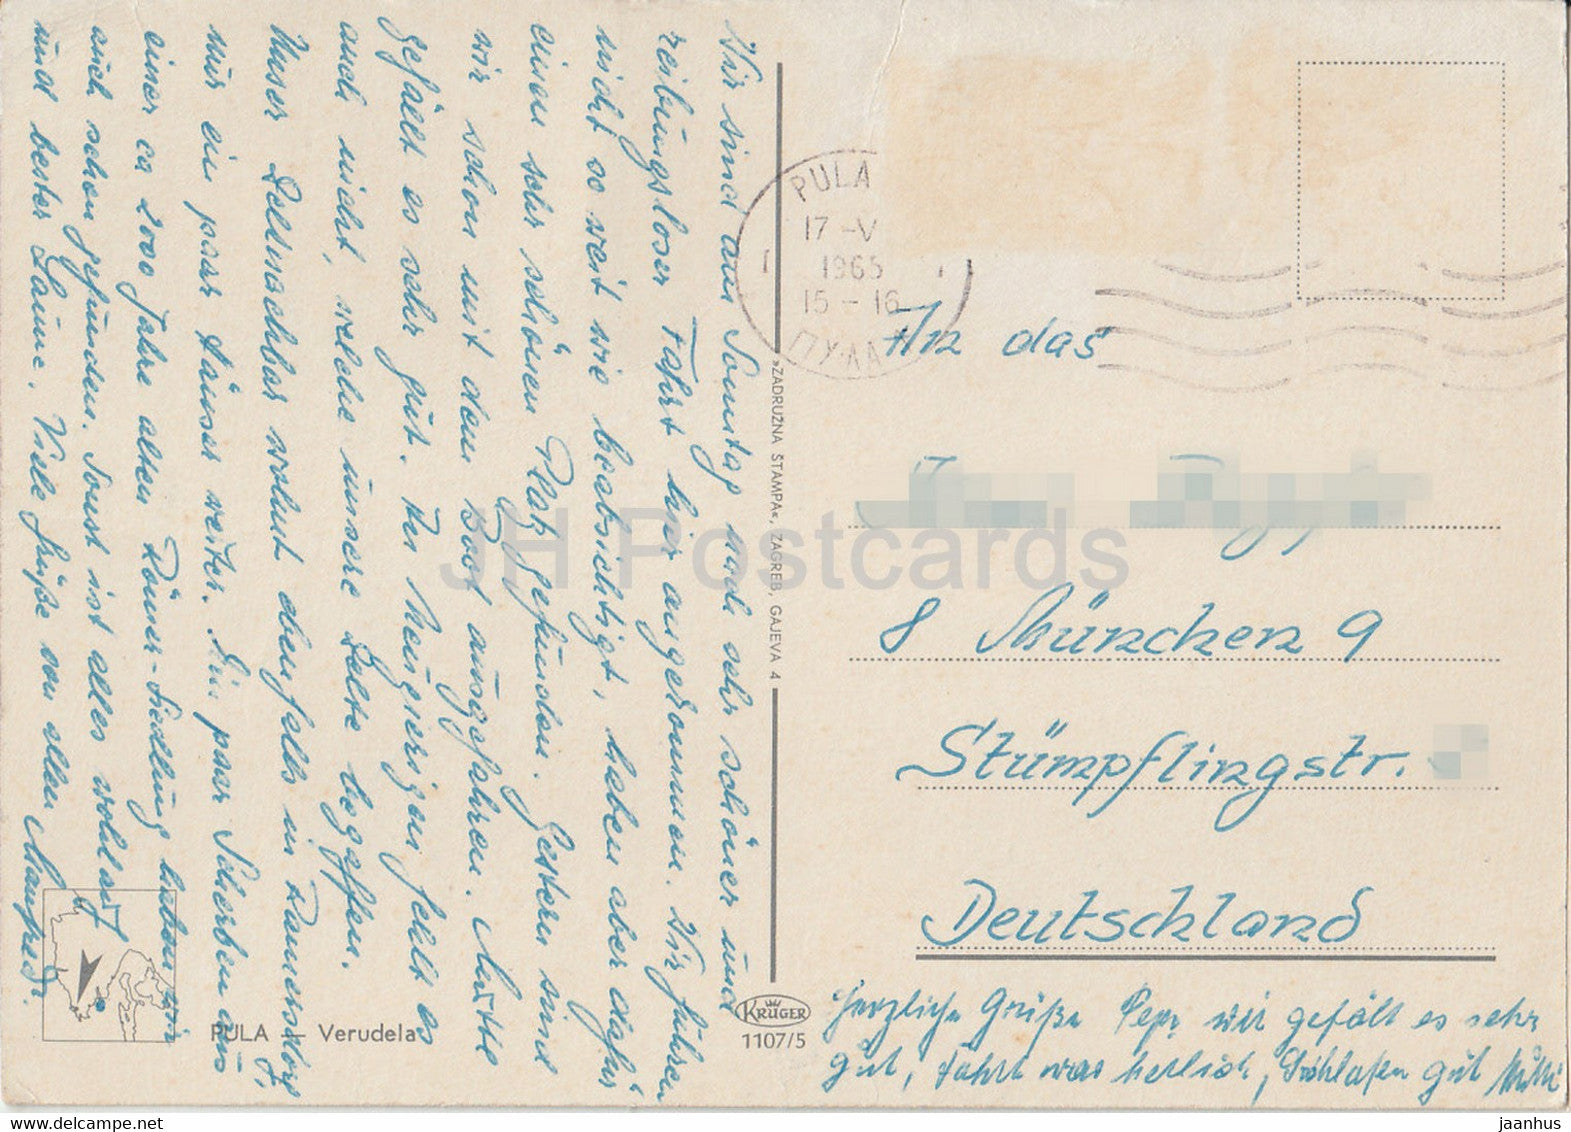 Wir sind am Sonntag nach sehr schöner und
reibungsloser Fahrt hier angekommen. Wir fuhren
nicht so weit wie beabsichtigt, haben aber dafür
einen sehr schönen Platz gefunden. Gestern sind
wir schon mit dem Boot ausgefahren. Mutti
gefällt es sehr gut. An Neugierigen fehlt es
auch nicht, welche unsere Zelte begaffen.
Unser Zeltnachbar wohnt ebenfalls in Ramersdorf,
nur ein paar Häuser weiter. Ein paar Scherben aus
einer ca 2000 Jahre alten Römer-Siedlung haben wir
auch schon gefunden. Sonst ist alles wohlauf
und bester Laune. Viele Grüße von allen Manfred.
PULA – Verudela
»ZADRUŽNA ŠTAMPA«, ZAGREB, GAJEVA 4
KRÜGER
1107/5
PULA
17-V
1965
15-16
ПУЛА
An das
8 München 9
Stümpflingstr.
Deutschland
Herzliche Grüße Pepi wir gefällt es sehr
gut, Fahrt war herrlich, Schlafen gut Mutti
JH Postcards
jaanhus